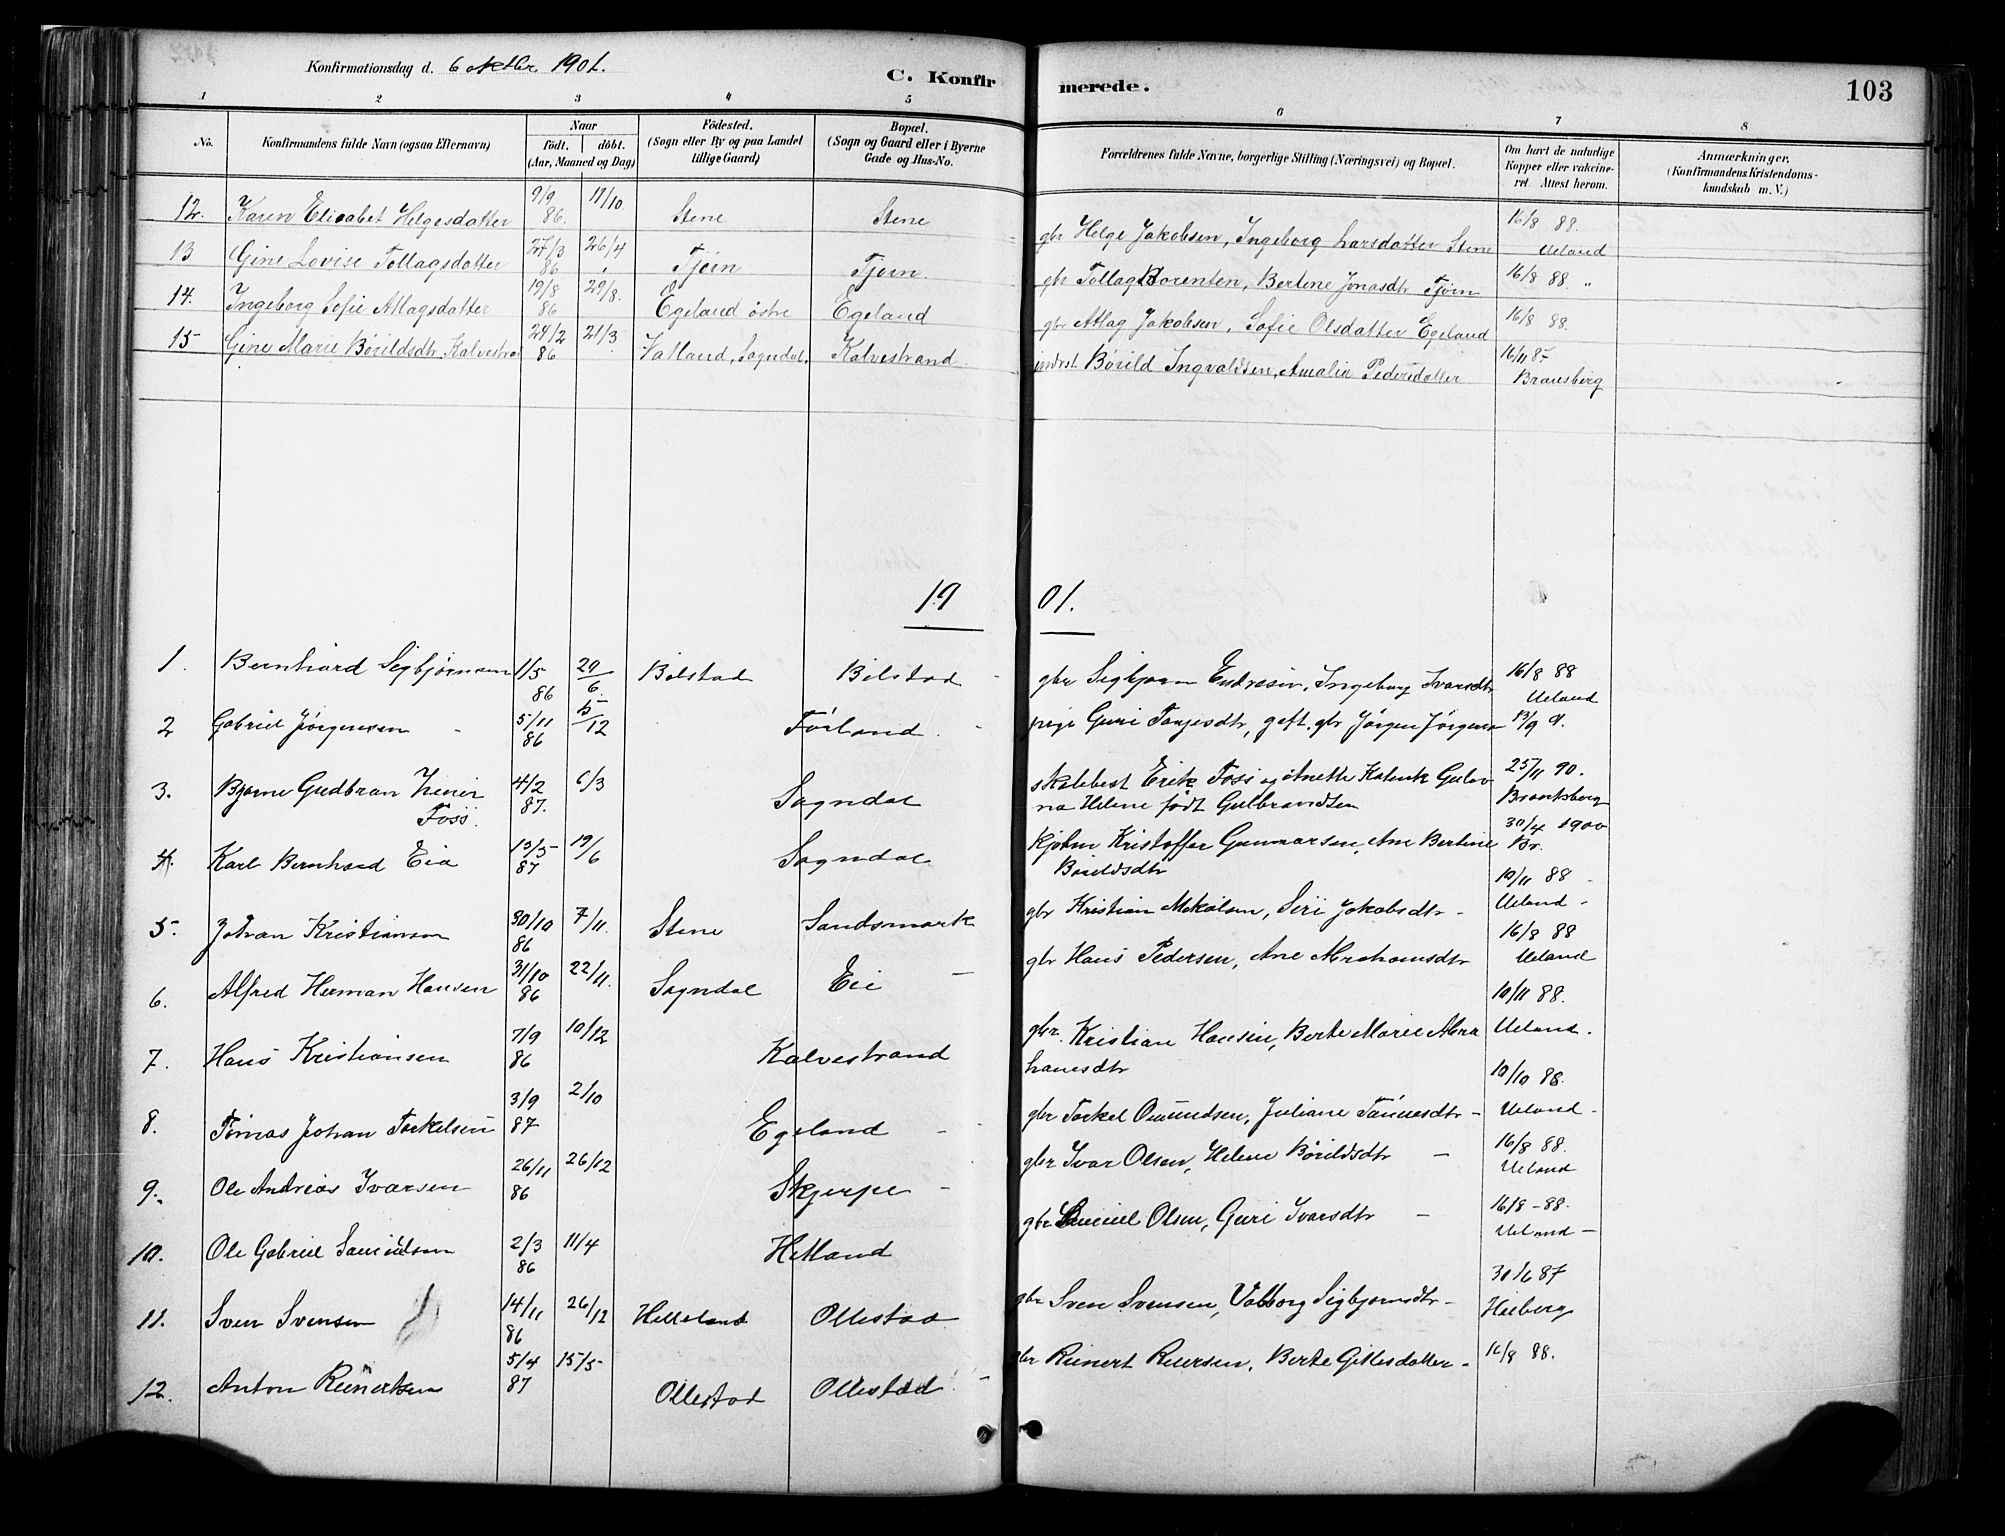 Konfirmationsdag d. 6 oktbr 1901.
C. Konfirmerede.
103
1 2 3 4 5 6 7 8
No.
Konfirmandens fulde Navn (ogsaa Efternavn)
Naar
födt. döbt.
(Aar, Maaned og Dag)
Födested.
(Sogn eller By og paa Landet
tillige Gaard)
Bopæl.
(Sogn og Gaard eller i Byerne
Gade og Hus-No.
Forældrenes fulde Navne, borgerlige Stilling (Næringsvei) og Bopæl.
Om havt de naturlige
Kopper eller vakcine-
ret. Attest herom.
Anmærkninger,
(Konfirmandens Kristendoms-
kundskab m. V.)
12. Karen Elisabet Helgesdatter 9/9 86. 11/10 Stene Stene gbr Helge Jakobsen, Ingeborg Larsdatter Stene 16/8 88. Ueland
13 Gine Lovise Tollagsdatter 27/3 86 26/4 Tjørn Tjørn. gbr Tollag Torenten, Bertine Jonasdtr Tjørn 16/8 88. "
14. Ingeborg Sofie Atlagsdatter 19/8 86 29/8. Egeland østre Egeland gbr Atlag Jakobsen, Sofie Olsdatter Egeland 16/8 88.
15 Gine Marie Børildsdtr Kalvestra 24/2 86 21/3 Vatland, Sogndal, Kalvestrand indrst Børild Ingvaldsen, Amalie Pedersdatter 16/11 87 Brausberg
1901.
1. Bernhard Sigbjørnsen 1/5 86 29/6. Bilstad Bilstad gbr Sigbjørn Endresen, Ingeborg Ivarsdtr 16/8 88 Ueland
2 Gabriel Jørgensen 5/11 86 5/12 Førland. pige Guri Tarjesdtr, gift. gbr Jørgen Jørgensn 13/9 9.
3. Bjarne Gudbran Heier 4/2 87. 6/3 Sogndal skolebest Erik Foss og Anette Katrink Gulov 25/11 90.
Foss. na Helene født Gulbrandsen Brantsberg
4 Karl Bernhard Eia 13/5 87 19/6 Sogndal Kjøbm Kristoffer Gunnarsen, Ane Bertine 30/4 1900 Br.
Børildsdtr
5. Johan Kristiansen 30/10 86 7/11. Stene Sandsmark gbr Kristian Mikalsen, Siri Jakobsdtr - 10/11 88 Ueland -
6. Alfred Herman Hansen 31/10 86 22/11. Sogndal Eie gbr Hans Pedersen, Ane Abrahamsdtr 16/8 88 Ueland
7. Hans Kristiansen 7/9 86 10/12 Kalvestrand gbr. Kristian Hansen, Berte Marie Abra 10/11 88. Ueland.
hamsdtr
8. Tomas Johan Torkelsen 3/9 87 2/10 Egeland gbr Torkel Omundsen, Juliane Tønnesdtr - 10/10 88. Ueland -
9. Ole Andreas Ivarsen 26/11 86 26/12 Skjerpe - gbr Ivar Olsen, Helene Børildsdtr - 16/8 88. Ueland
10. Ole Gabriel Samuelsen 2/3 86 11/4 Hetland gbr Samuel Olsen, Guri Ivarsdtr - 16/8 - 88. Ueland -
11. Sven Svensen 14/11 86 26/12 Helleland Ollestad gbr Sven Svensen, Valborg Sigbjørnsdtr - 30/6 87 Heiberg
12. Anton Reinertsen 5/4 87 15/5 Ollestad Ollestad gbr Reinert Reiersen, Berte Gitlesdatter - 16/8 88.